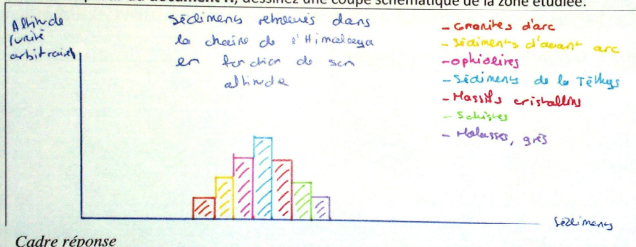 du document H, dessinez une coupe schématique de la zone étudiée.
Altitude
(unité
arbitraire)
Sédiments retrouvés dans
la chaine de l'Himalaya
en fonction de son
altitude
- Granites d'arc
- Sédiments d'avant arc
- ophiolites
- Sédiments de la Téthys
- Massifs cristallins
- Schistes
- Molasses, grès
Sédiments
Cadre réponse